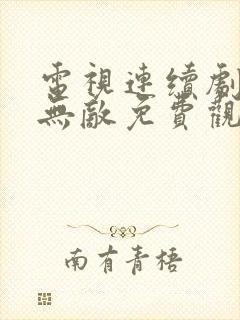 電視連續劇
無敵免費觀
南有青梧